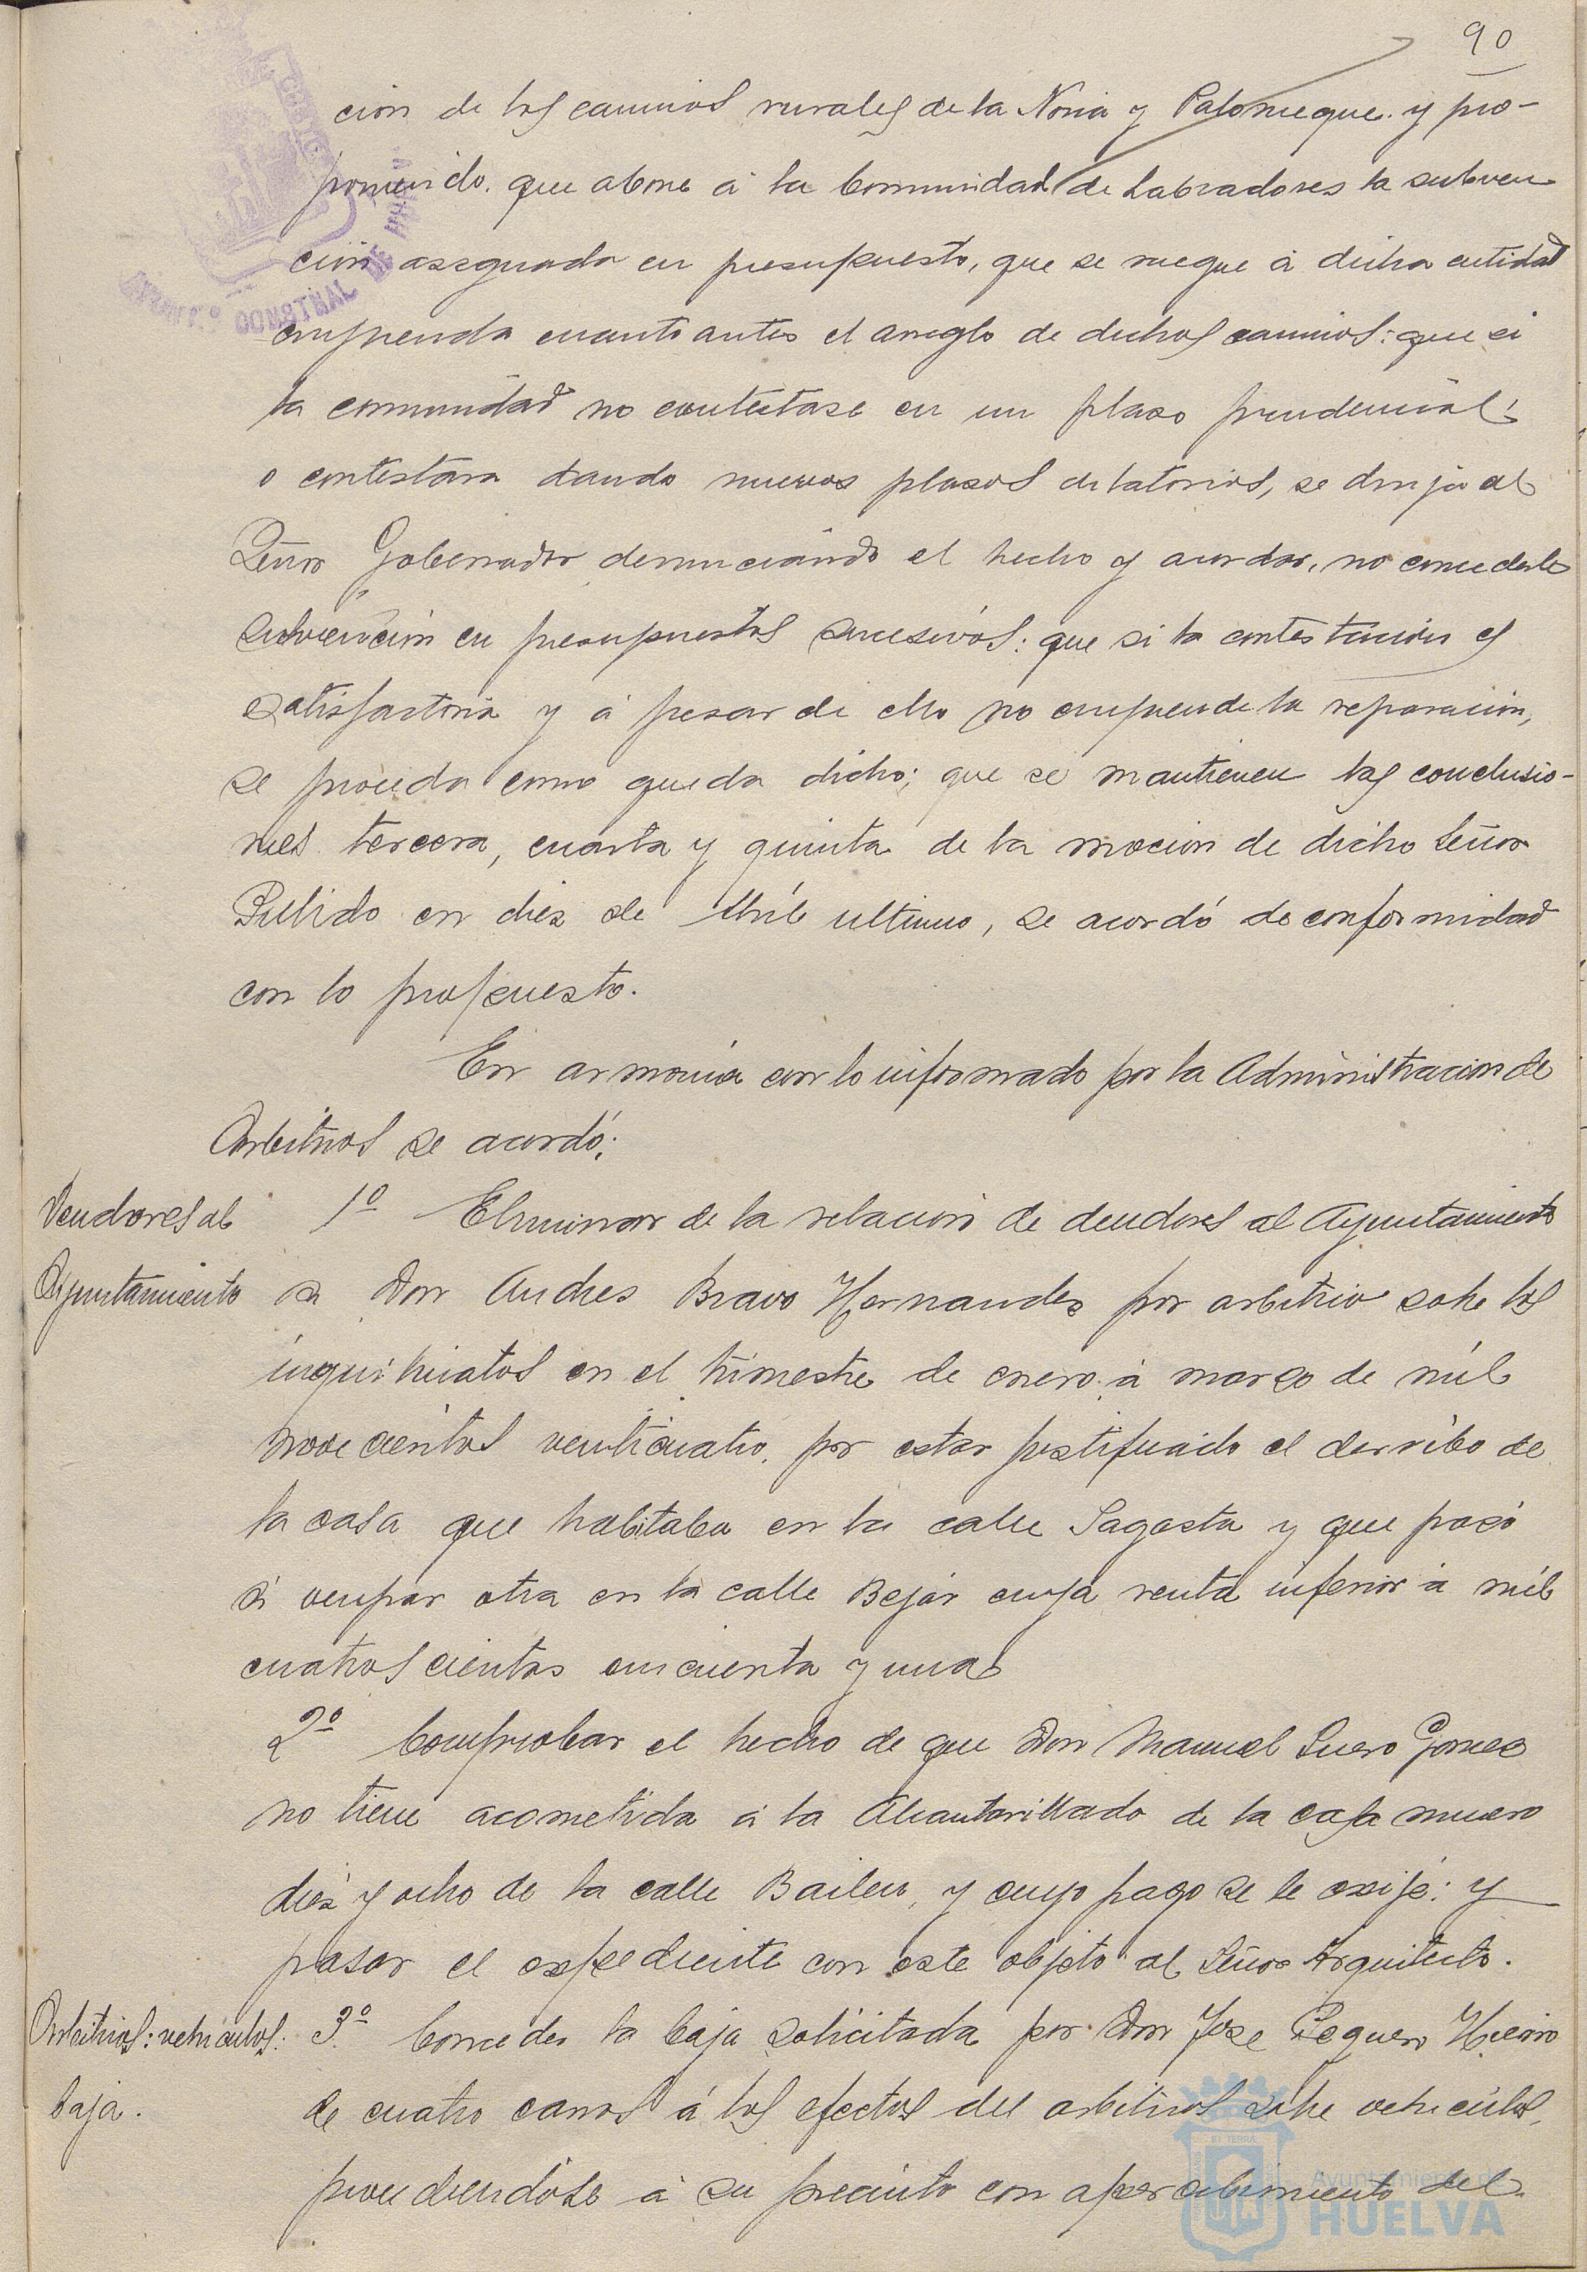 90
ción de los caminos rurales de la Noria y Palomeque. y pro-
poniendo. que abone á la Comunidad de Labradores la subven
ción asignada en presupuesto, que se ruegue á dicha entidad
emprenda cuanto antes el arreglo de dichos caminos: que si
la comunidad no contestase en un plazo prudencial
o contestara dando nuevos plasos dilatorios, se dirija al
Señor Gobernador denunciando el hecho y acordar, no concederle
subvención en presupuestos sucesivos: que si la contestación es
satisfactoria y á pesar de ello no emprende la reparación,
se proceda como queda dicho; que se mantienen las conclusio-
nes tercera, cuarta y quinta de la moción de dicho Señor
Pulido en diez de Abril ultimo, se acordó de conformidad
con lo propuesto.
En armonia con lo informado por la Administración de
Arbitrios se acordó;
Deudores al
Ayuntamiento
1º Eliminar de la relación de deudores al Ayuntamiento
a Don Andres Bravo Hernandez por arbitrio sobre los
inquilinatos en el trimestre de enero á marzo de mil
novecientos venticuatro, por estar justificado el derribo de
la casa que habitaba en la calle Sagasta y que pasó
á ocupar otra en la calle Bejar cuya renta inferior á mil
cuatroscientas cincuenta y una
2º Comprobar el hecho de que Don Manuel Suero Gomez
no tiene acometida á la Alcantarillado de la casa numero
diez y ocho de la calle Bailen, y cuyo pago se le exije: y
pasar el expediente con este objeto al Señor Arquitecto.
Arbitrios: vehiculos:
baja.
3º Conceder la baja solicitada por Don Jose Peguero Hierro
de cuatro carros á los efectos del arbitrios sobre vehiculos,
procediendose á su precinto con apercibimiento del
Ayuntamiento de
HUELVA